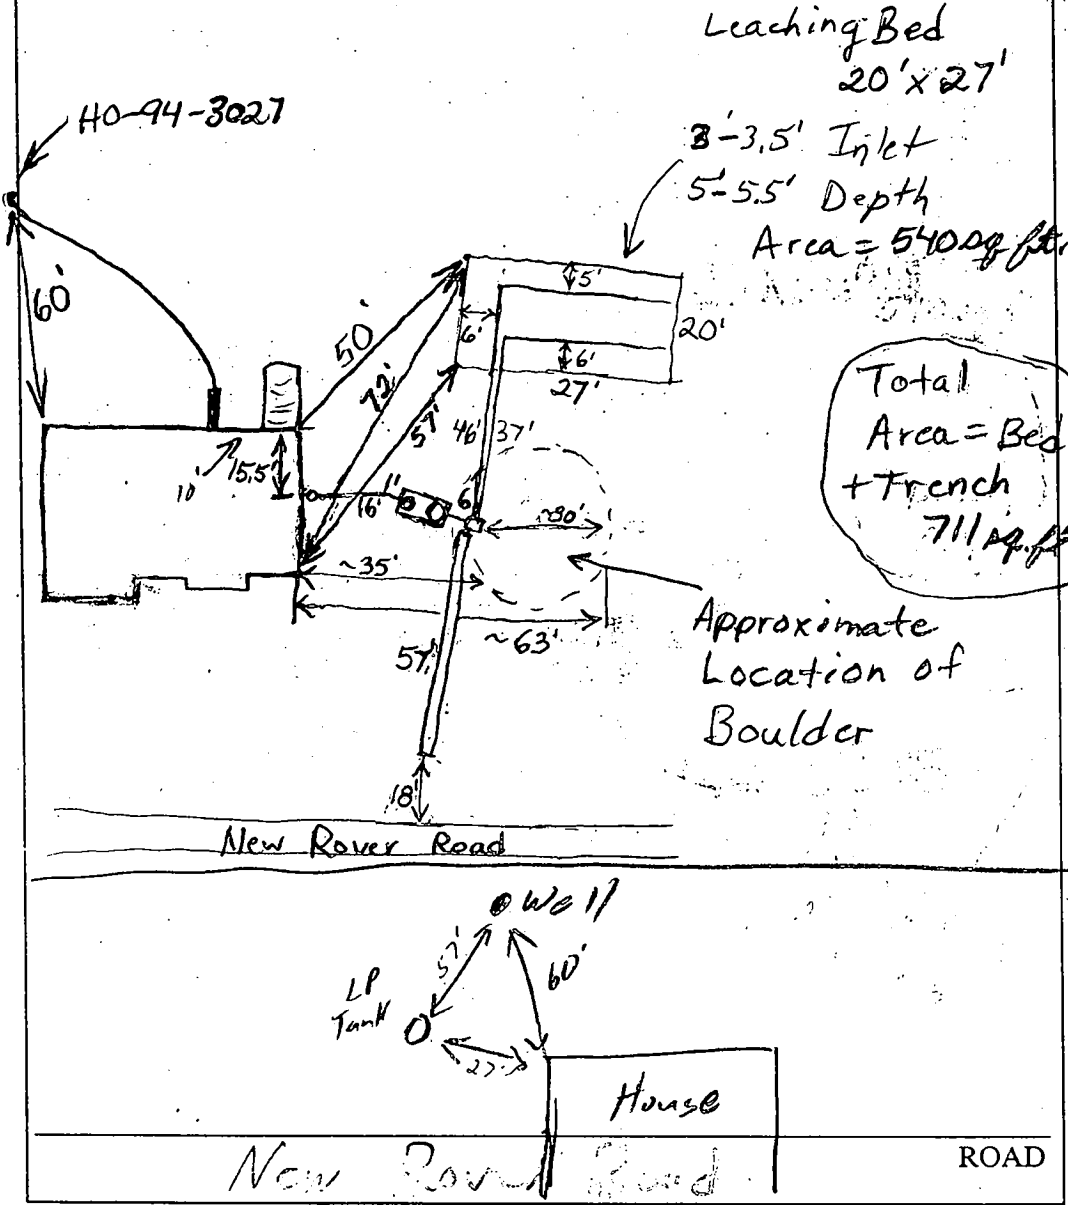 Leaching Bed
20' x 27'
HO-94-3027
3'-3.5' Inlet
5'-5.5' Depth
Area = 540 sq ft.
5'
60'
6'
20'
50'
6'
27'
72'
57'
Total
Area = Bed
+ Trench
711 sq. ft
46'
37'
15.5'
10'
1'
16'
6'
~30'
~35'
Approximate
Location of
Boulder
~63'
57'
18'
New Rover Road
Well
57'
60'
LP
Tank
27'
House
New Rover Road
ROAD